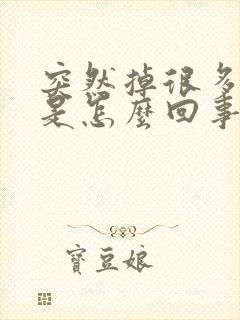 突然掉很多
是怎麼回事
寶豆娘